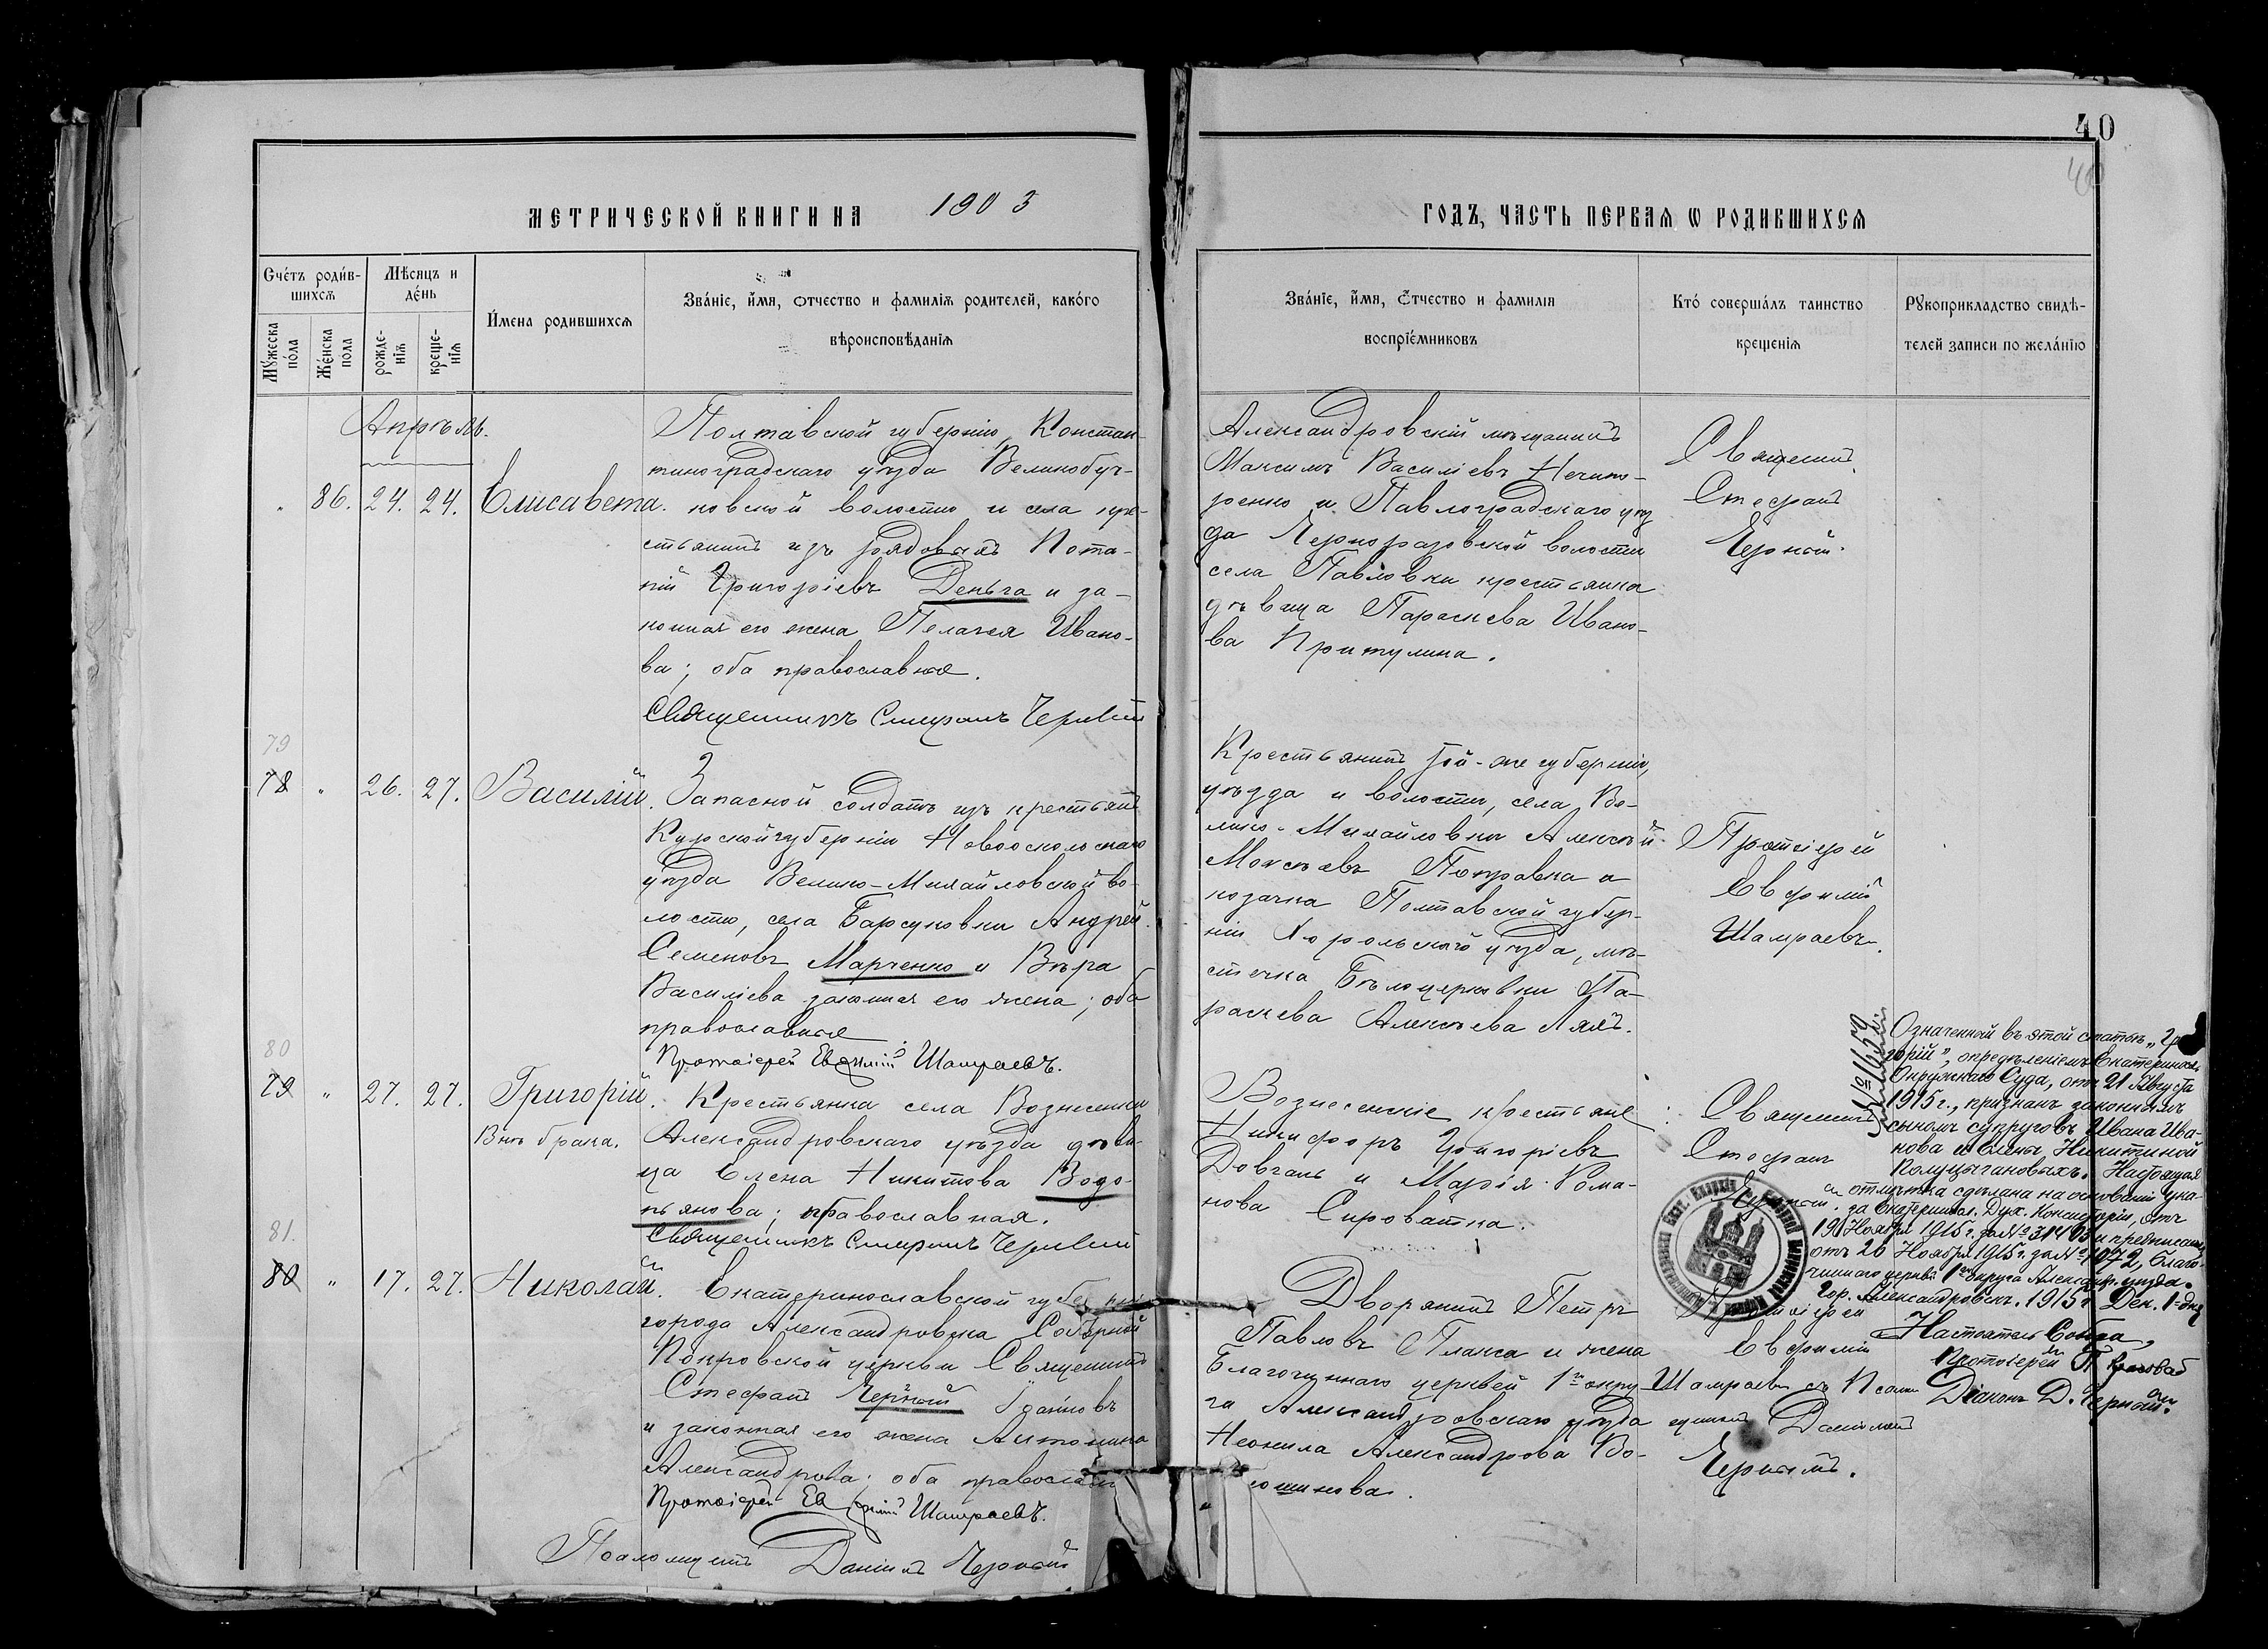 40
40
МЕТРИЧЕСКОЙ КНИГИ НА 1903
ГОДЪ, ЧАСТЬ ПЕРВАЯ Ѡ РОДИВШИХСЯ
Счетъ родив-
шихся
Мѣсяцъ и
день
Имена родившихся
Званіе, имя, отчество и фамилія родителей, какого
вѣроисповѣданія
Мужеска
пола
Женска
пола
рожде-
нія
креще-
нія
Званіе, имя, отчество и фамилія
воспріемниковъ
Кто совершалъ таинство
крещенія
Рукоприкладство свидѣ-
телей записи по желанію
Апрѣль.
" 86. 24. 24. Елисавета.
Полтавской губерніи, Констан-
тиноградскаго уѣзда Великобуч-
ковской волости и села кре-
стьянинъ изъ рядовыхъ Пота-
пій Григоріевъ Деньга и за-
конная его жена Пелагея Ивано-
ва; оба православные.
Священникъ Стефанъ Черный
Александровскій мѣщанинъ
Максимъ Василіевъ Нечипо-
ренко и Павлоградскаго уѣз
да
волости
села Павловки крестьянка
дѣвица Параскева Ивано-
ва Притулина.
Священникъ
Стефанъ
Черный.
79
78 " 26. 27. Василій.
Запасной солдатъ изъ крестьянъ
Курской губерніи Новооскольскаго
уѣзда Велико-Михайловской во-
лости, села Барсуковки Андрей
Семеновъ Марченко и Вѣра
Василіева законная его жена; оба
православные
Протоіерей Евфимій Шамраевъ.
Крестьянинъ той-же губерніи,
уѣзда и волости, села Ве-
лико-Михайловки Алексѣй
Моисѣевъ Поправка и
козачка Полтавской губер-
ніи Хорольскаго уѣзда, мѣ-
стечка Бѣлоцерковки Па-
раскева Алексѣева Ляхъ.
Протоіерей
Евфимій
Шамраевъ.
80
79 " 27. 27. Григорій.
Внѣ брака.
Крестьянка села Вознесенки
Александровскаго уѣзда дѣви-
ца Елена Никитова Водо-
пьянова; православная.
Священникъ Стефанъ Черный
Вознесенскіе крестьяне:
Никифоръ Григоріевъ
Довгаль и Марія Рома-
нова Сироватка.
Священникъ
Стефанъ
Черный.
№ 11659
Означенный въ этой статьѣ „Гри
горій“, опредѣленіемъ Екатеринослав.
Окружнаго Суда, отъ 21 Августа
1915 г., признанъ законнымъ
сыномъ супруговъ Ивана Ива-
нова и Елены Никитиной
Полуцыгановыхъ. Настоящая
отмѣтка сдѣлана на основаніи ука-
за Екатериносл. Дух. Консисторіи, отъ
19 Ноября 1915 г. за № 31403 и предписанія
отъ 26 Ноября 1915 г. за № 1072, Благо-
чиннаго церквей 1го округа Александр. уѣзда.
Гор. Александровскъ. 1915 г. Дек. 1-дня
Настоятель Собора,
Протоіерей П.
Діаконъ Д. Черный.
81.
80 " 17. 27. Николай.
Екатеринославской губерніи
города Александровска Соборной
Покровской церкви Священникъ
Стефанъ Черный Іоанновъ
и законная его жена Антонина
Александрова; оба православные
Протоіерей Евфимій Шамраевъ.
Псаломщикъ Даніилъ Черный
Дворянинъ Петръ
Павловъ Плакса и жена
Благочиннаго церквей 1го окру-
га Александровскаго уѣзда
Неонила Александрова Во-
лошинова.
Протоіерей
Евфимій
Шамраевъ съ Псалом
щикомъ Даніиломъ
Чернымъ.